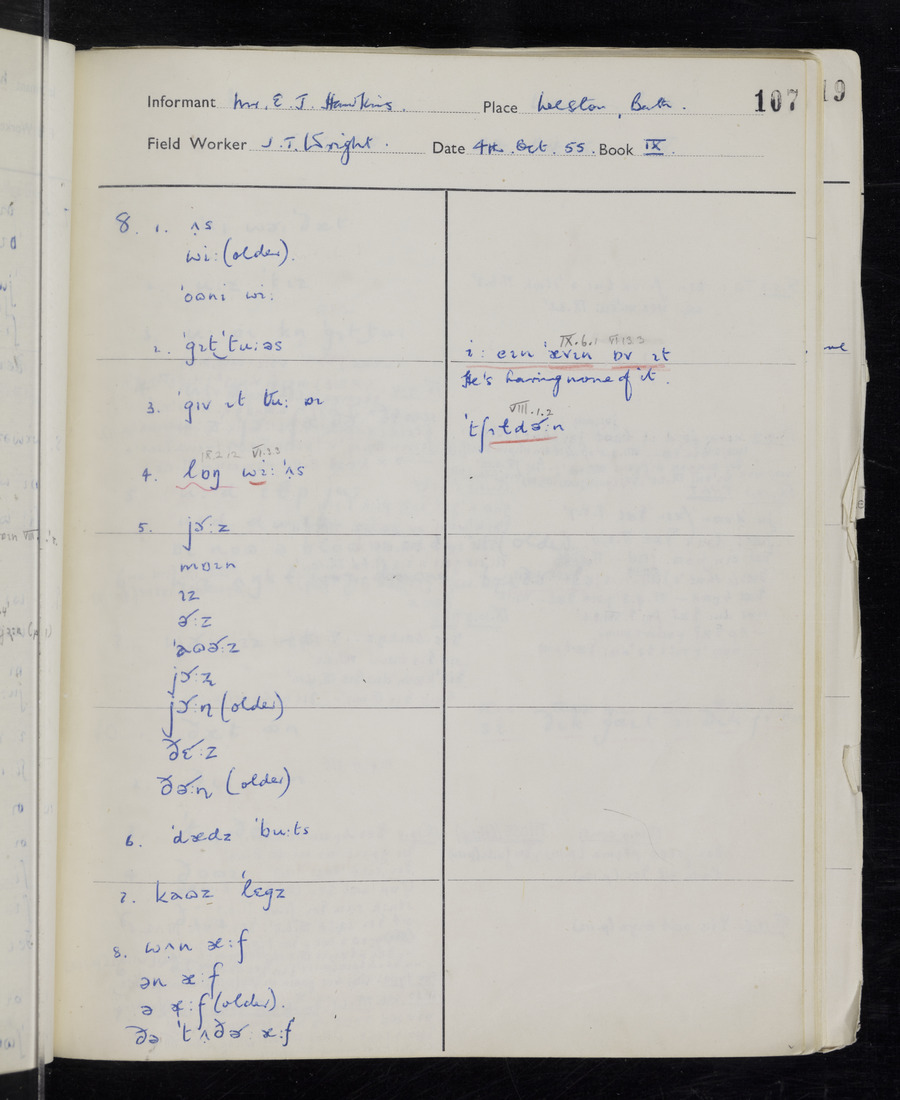 Informant Mr. E. J. Hawkins. Place Weston, Bath. 107 19
Field Worker J. T. Wright. Date 4th. Oct. 55. Book IX.
8. 1. ʌs
wi: (older).
ˈoʊnɪ wi:
2. ˈgɪt ˈtu:əs
3. ˈgɪv ɪt tu: əɪ
IX.2.12 VI.3.3
4. lɒŋ wi: ˈʌs
5. jɔ˞:z
mɒɪn
ɪz
ə˞:z
ˈaʊə˞:z
jɔ˞:z
jɔ˞:n̩ (older)
ðɛ˞:z
ðə˞:n̩ (older)
6. ˈdædz ˈbu:ts
7. kaʊz ˈlegz
8. wʌn æ:f
ən æ:f
ə æ:f (older).
ðə ˈtʌðə˞ æ:f
IX.6.1 VI.13.3
i: eɪn ˈævɪn ɒv ɪt
He's having none of it.
VIII.1.2
ˈtʃɪldə˞:n